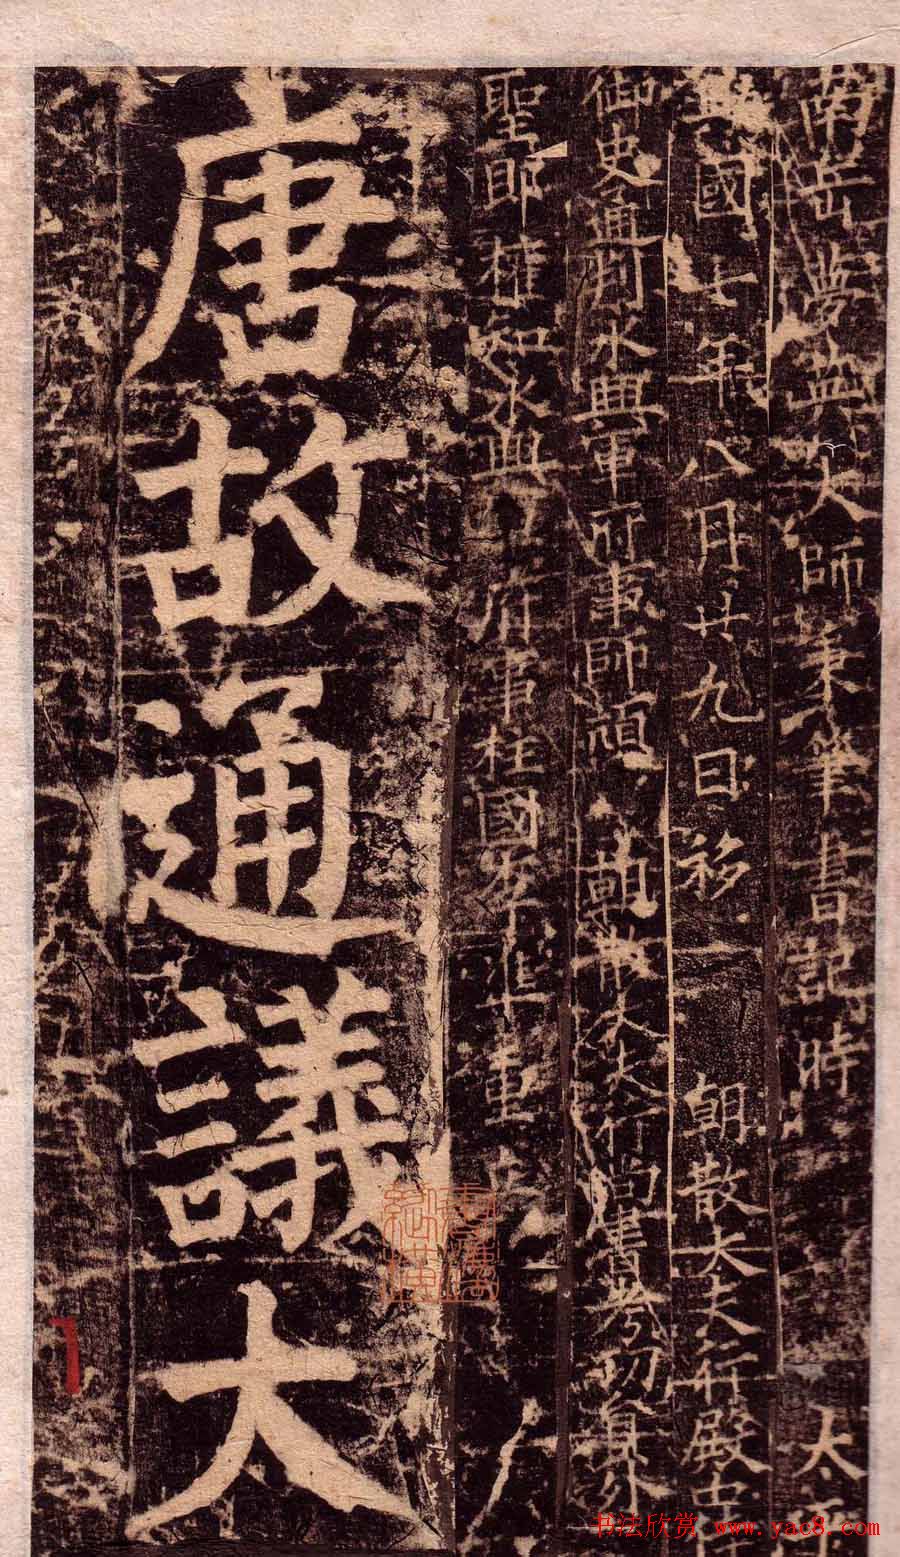 南岳夢英大師秉筆書記時 太平
興國七年八月廿九日移 朝散大夫行殿中侍
御史通判永興軍府事師頏 朝散大夫行尚書考功員外
郎權知永興軍府事柱國李準重
唐故通議大
书法欣赏 www.yac8.com